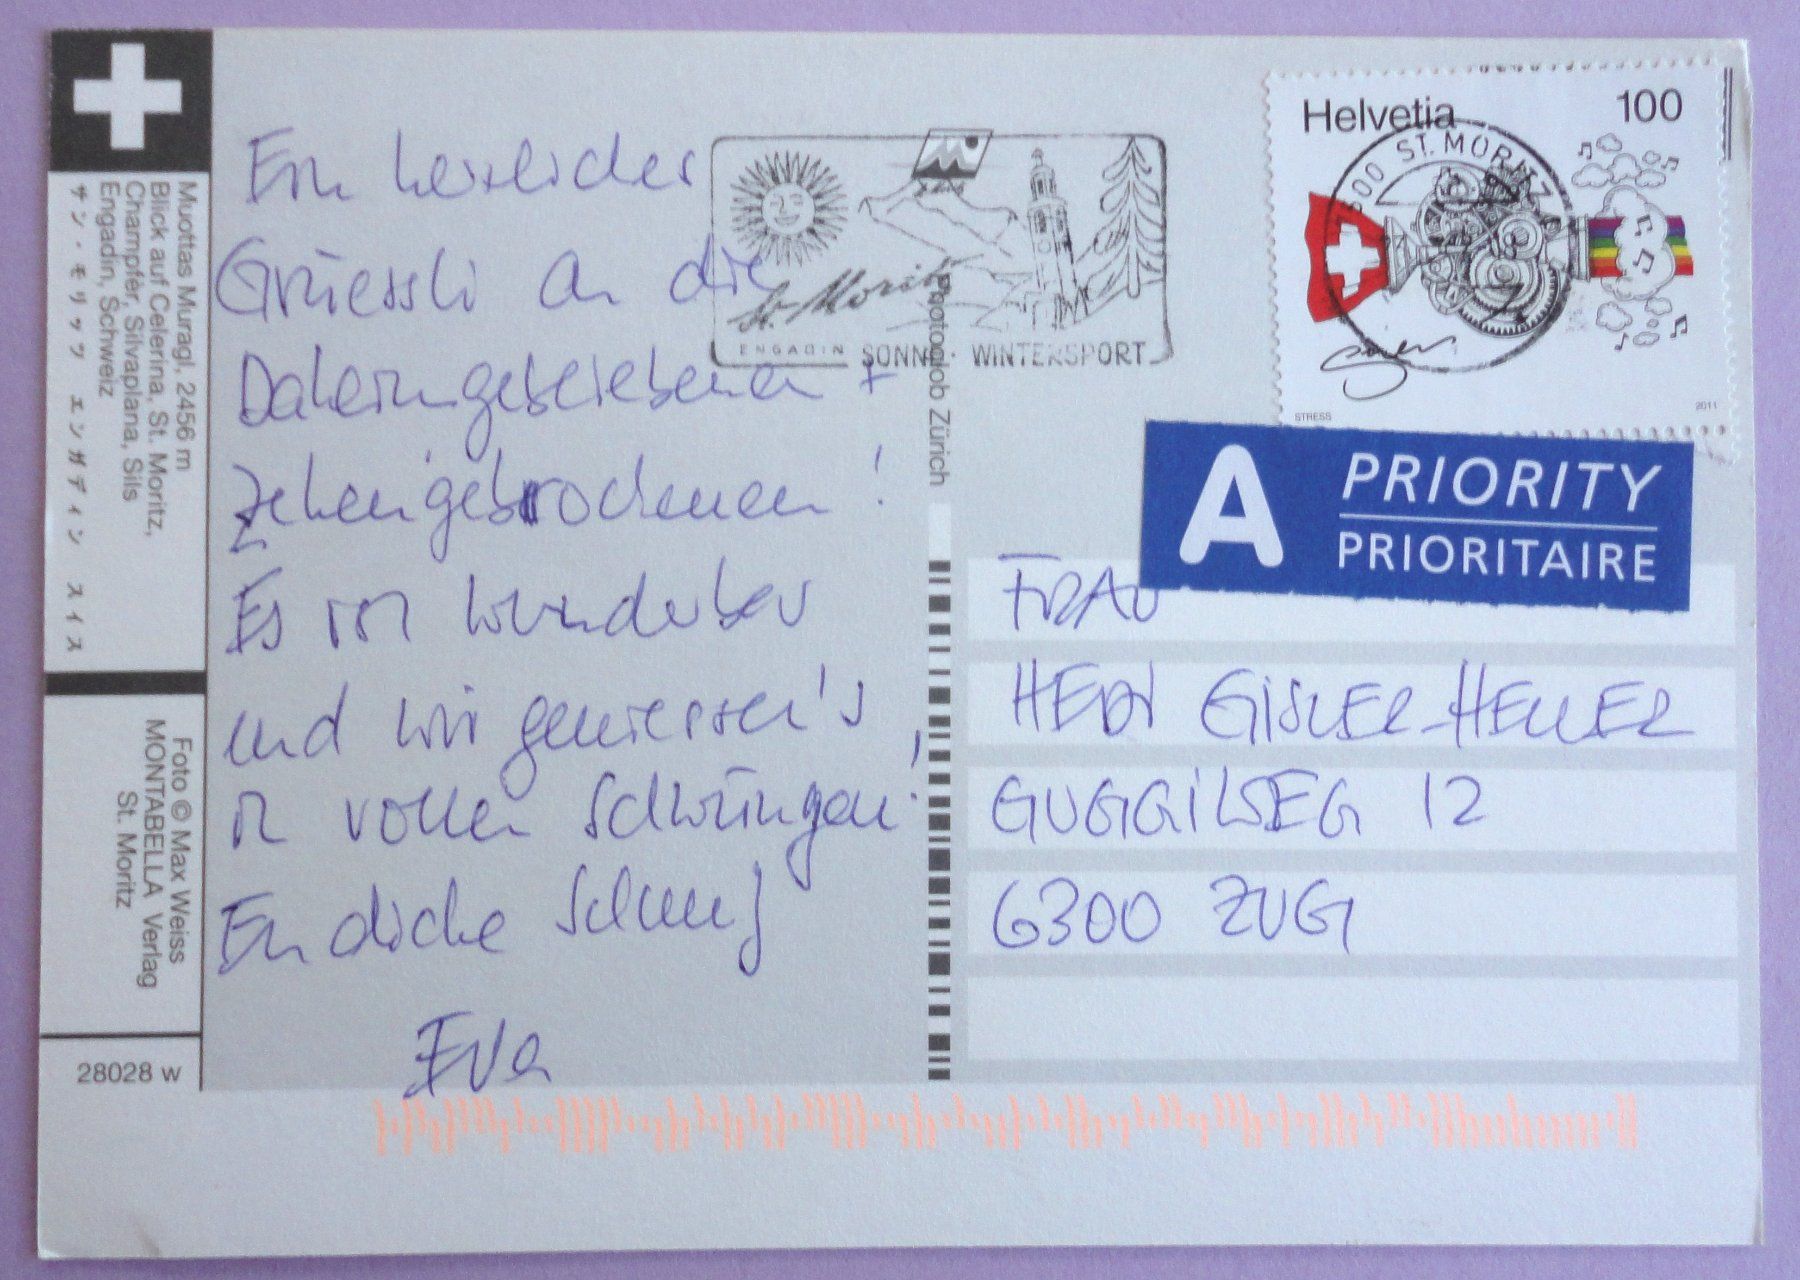 Muottas Muragl, 2456 m
Blick auf Celerina, St. Moritz,
Champfèr, Silvaplana, Sils
Engadin, Schweiz
サン・モリッツ エンガディン スイス
Foto © Max Weiss
MONTABELLA Verlag
St. Moritz
28028 w
Ein herzlicher
Grüessli an die
Daheimgebliebenen +
Zehengebrochenen!
Es ist wunderbar
und wir geniessen's
in vollen Schwüngen!
En dicke Schmuz
Eva
St. Moritz
ENGADIN SONNE · WINTERSPORT
Photoglob Zürich
Helvetia 100
ST. MORITZ
STRESS
2011
A PRIORITY
PRIORITAIRE
FRAU
HERR GISLER-HELLER
GUGGIWEG 12
6300 ZUG